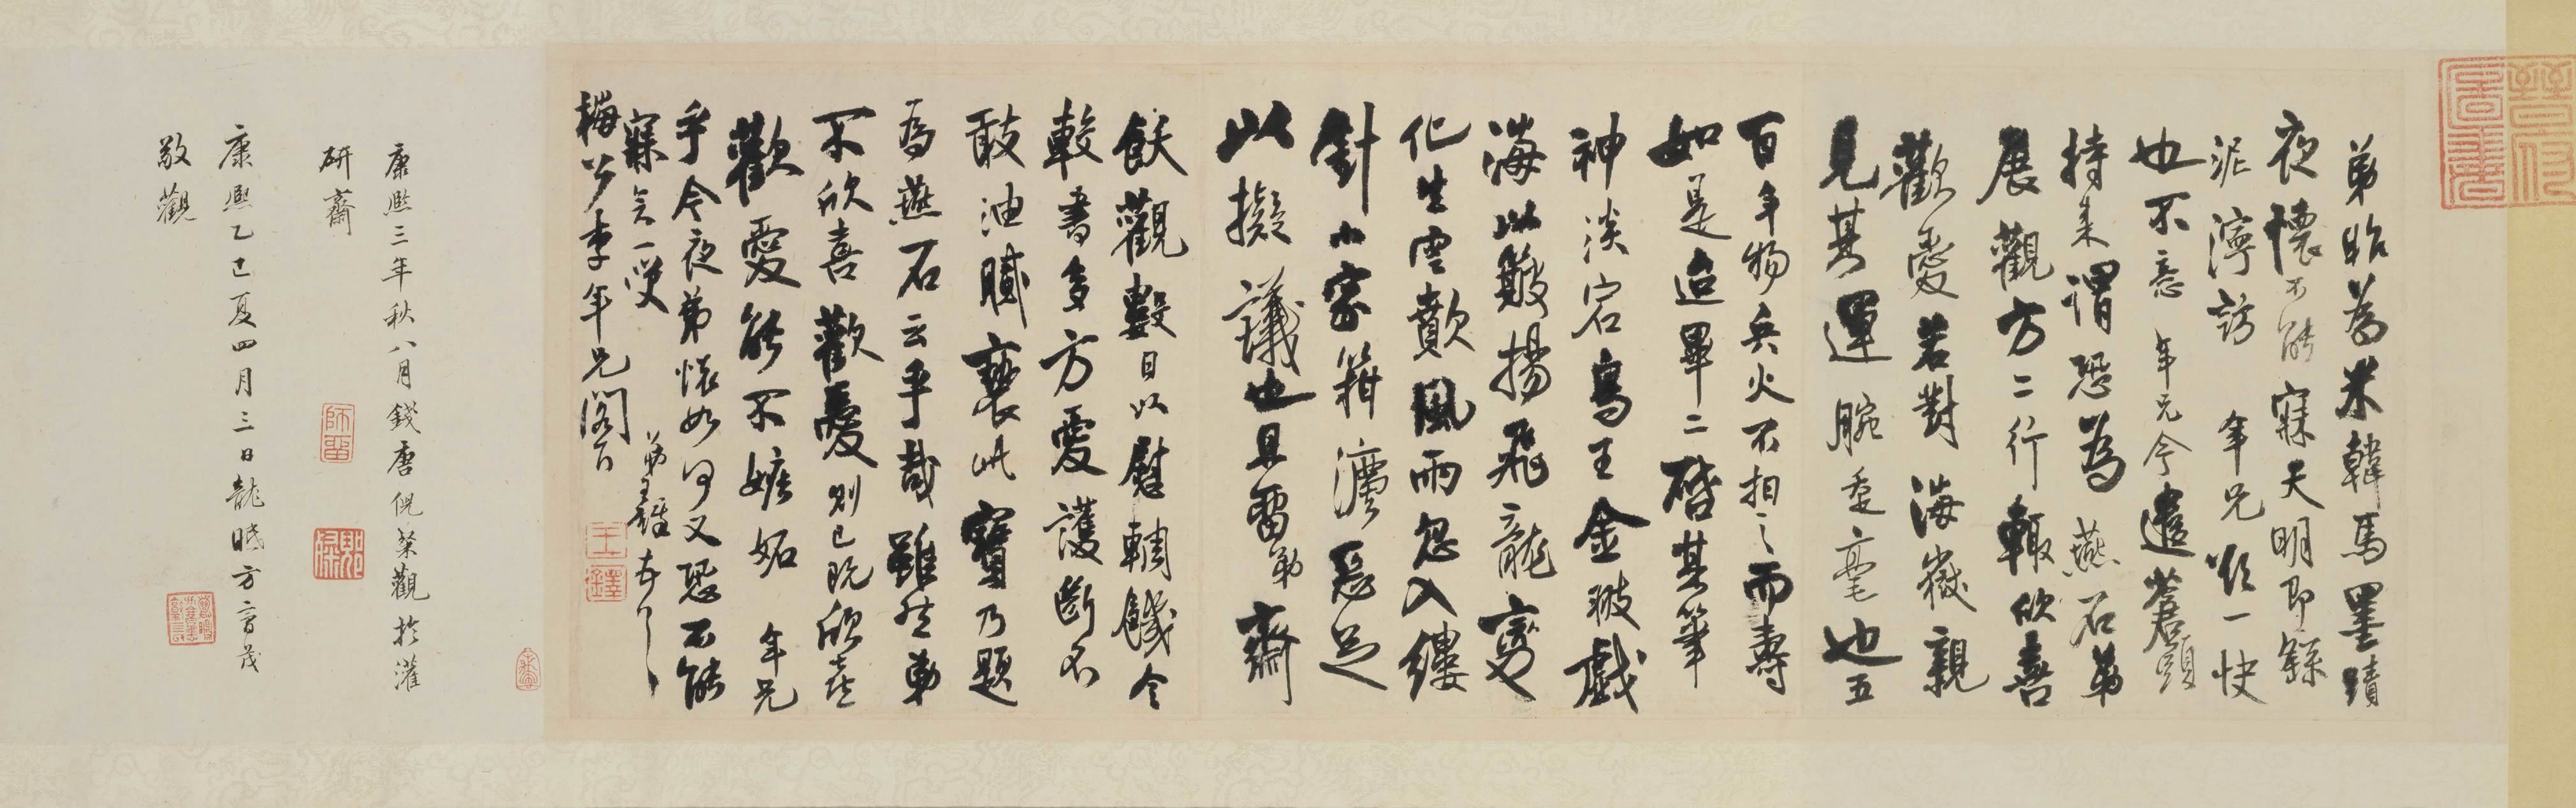 弟昨為米韓馬墨蹟
夜懷不能寐天明即錄
泥濘訪 年兄作一快
也不意 年兄今遣蒼頭
持来謂恐為 燕石弟
展觀方二行輙欣喜
歡愛若對海嶽親
見其運腕垂毫也五
百年物兵火不相之而壽
如是迨畢二啓其筆
神淡宕鳥王金翅戲
海以皷揚飛龍寥
化生雲歕風雨忽入縷
針小家籍瀍惡足
此擬議也且留弟齋
飫觀數日以慰輖饑今
較書多方愛護斷不
敢油膩褻此寶乃題
為燕石云乎哉雖然弟
不欣喜歡愛則已既欣喜
歡愛能不嫉妬 年兄
乎今夜弟懷如何又恐不能
寐矣一笑 弟王鐸頓首
梅公李年兄閣下
王鐸
康熙三年秋八月錢唐倪粲觀於灌
研齋
師留
康熙乙巳夏四月三日龍眠方育茂
敬觀